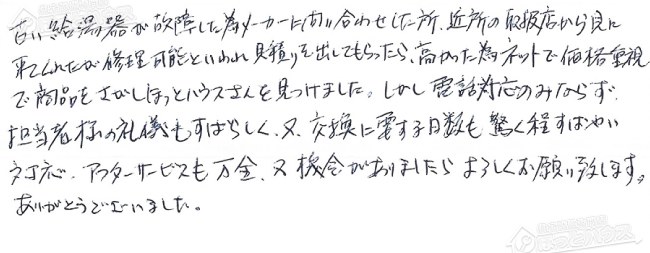 古い給湯器が故障した為メーカーに問い合わせした所、近所の取扱店から見に
来てくれたが修理可能といわれ見積りを出してもらったら、高かった為ネットで価格重視
で商品をさがしほっとハウスさんを見つけました。しかし電話対応のみならず、
担当者様の礼儀もすばらしく、又、交換に要する日数も驚く程すばやい
対応、アフターサービスも万全、又機会がありましたらよろしくお願い致します。
ありがとうございました。